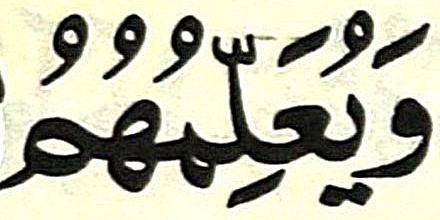 وَيُعَلِّمُهُمُ